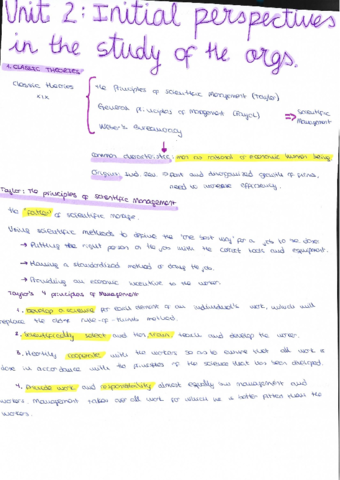 Unit 2: Initial perspectives
in the study of the orgs.
1. CLASSIC THEORIES
Classic theories
XIX
The Principles of Scientific Management (Taylor)
General Principles of Management (Fayol)
Weber's Bureaucracy
Scientific
Management
Common characteristics: man as rational & economic human being
Origin: Ind. Rev. and disorganized growth of firms,
need to increase efficiency.
Taylor: The principles of scientific management
The "father" of scientific manage.
Using scientific methods to define the "one best way" for a job to be done
→ Putting the right person on the job with the correct tools and equipment.
→ Having a standardized method of doing the job.
→ Providing an economic incentive to the worker.
Taylor's 4 principles of Management
1. Develop a science for each element of an individual's work, which will
replace the old rule-of-thumb method.
2. Scientifically select and then train, teach and develop the worker.
3. Heartily cooperate with the workers so as to ensure that all work is
done in accordance with the principles of the science that has been developed.
4. Divide work and responsibility almost equally btw management and
workers. Management takes over all work for which he is better fitted than the
workers.